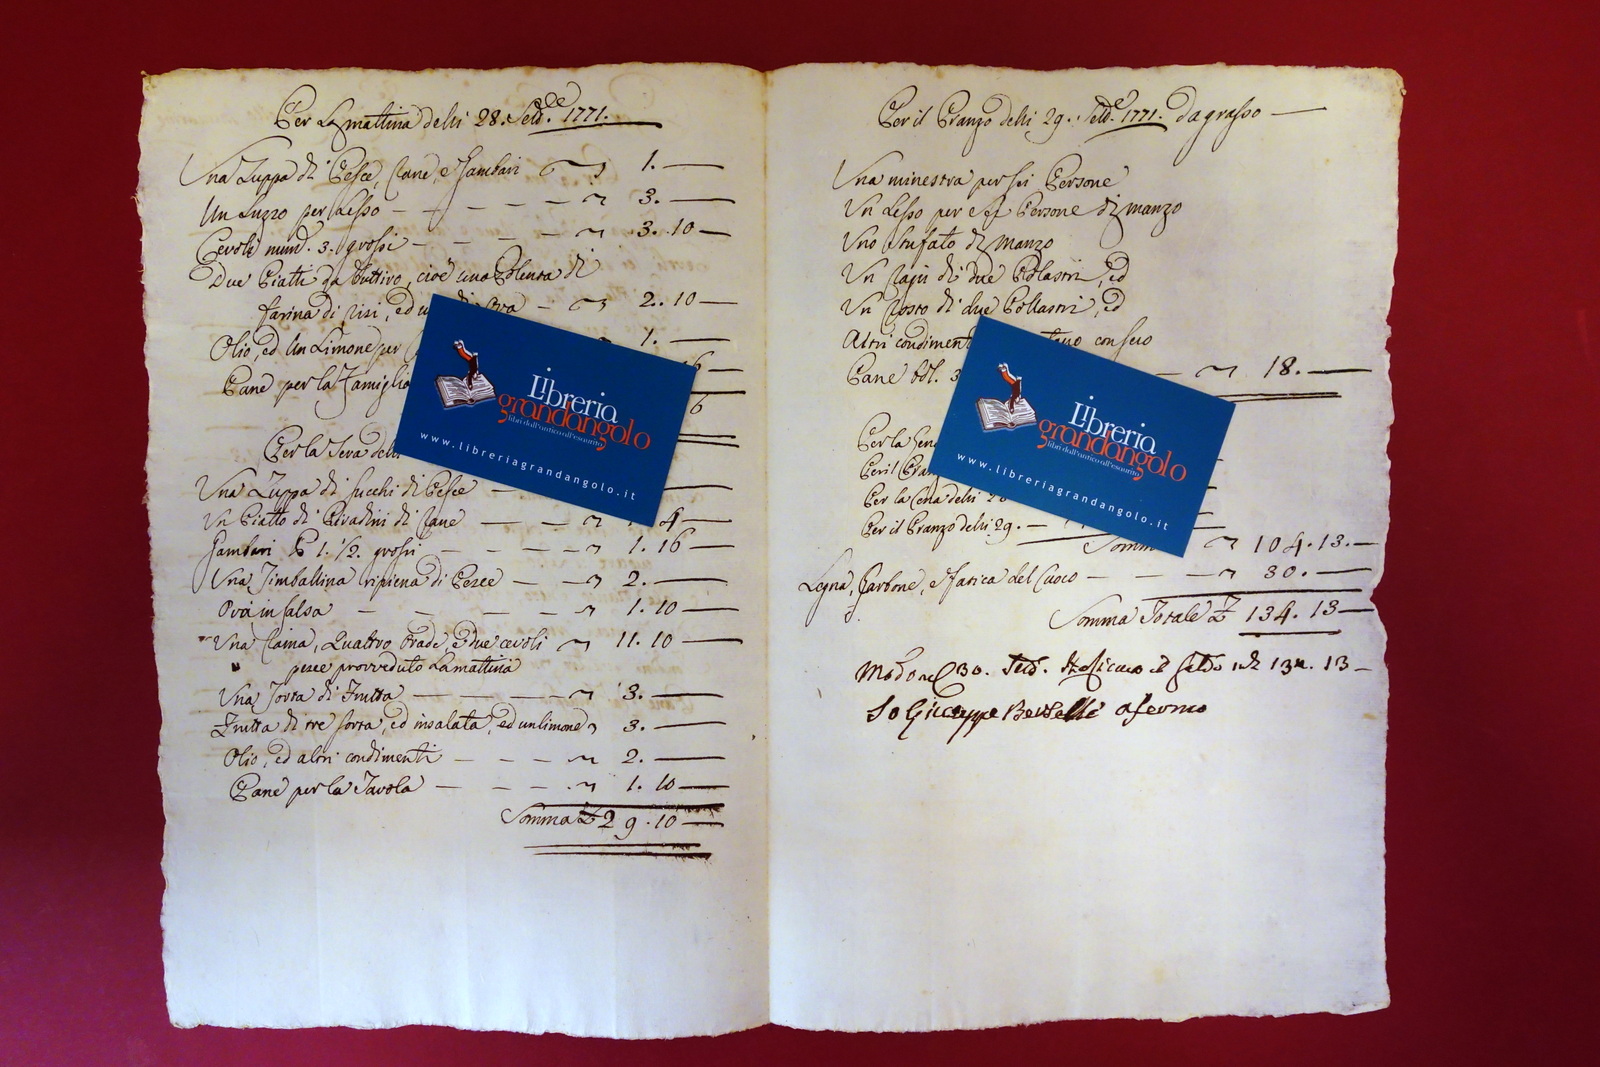 Per La mattina delli 28. Sett.e 1771.
Una Zuppa di Pesce, Rane, e Gambari 1.
Un Luzzo per Lesso 3.
Cevoli num. 3. grossi 3. 10
Due Piatti da buttivo, cioè una Polenta di
farina di risi, ed u 2. 10
Olio, ed Un Limone per 1.
Pane per la Famiglia 6
6
Per la Sera delli
Una Zuppa di succhi di Pesce
Un Piatto di Rane 4
Gambari 1. 1/2. grossi 1. 16
Una Timballina ripiena di Pesce 2.
Ova in salsa 1. 10
Una Raina, Quattro Orade, e due cevoli 11. 10
pesce provveduto La mattina
Una Torta di Frutta 3.
Frutta di tre sorta, ed insalata, ed un limone 3.
Olio, ed altri condimenti 2.
Pane per la Tavola 1. 10
Somma £ 29. 10
Per il Pranzo delli 29. Sett.e 1771. da grasso
Una minestra per sei Persone
Un Lesso per Persone di manzo
Uno Stufato di Manzo
Un di due Pollastri, ed
Un rosto di due Pollastri, ed
Altri condimenti con seco
Pane 18.
Per la
Per il Pran
Per la Cena delli 28
Per il Pranzo delli 29.
Somm 104. 13.
Legna, Carbone, e fatica del Cuoco 30.
Somma Totale £ 134. 13
30. 134. 13
Io Giuseppe afermo
Libreria
grandangolo
libri dall'antico all'esaurito
www.libreriagrandangolo.it
Libreria
grandangolo
libri dall'antico all'esaurito
www.libreriagrandangolo.it